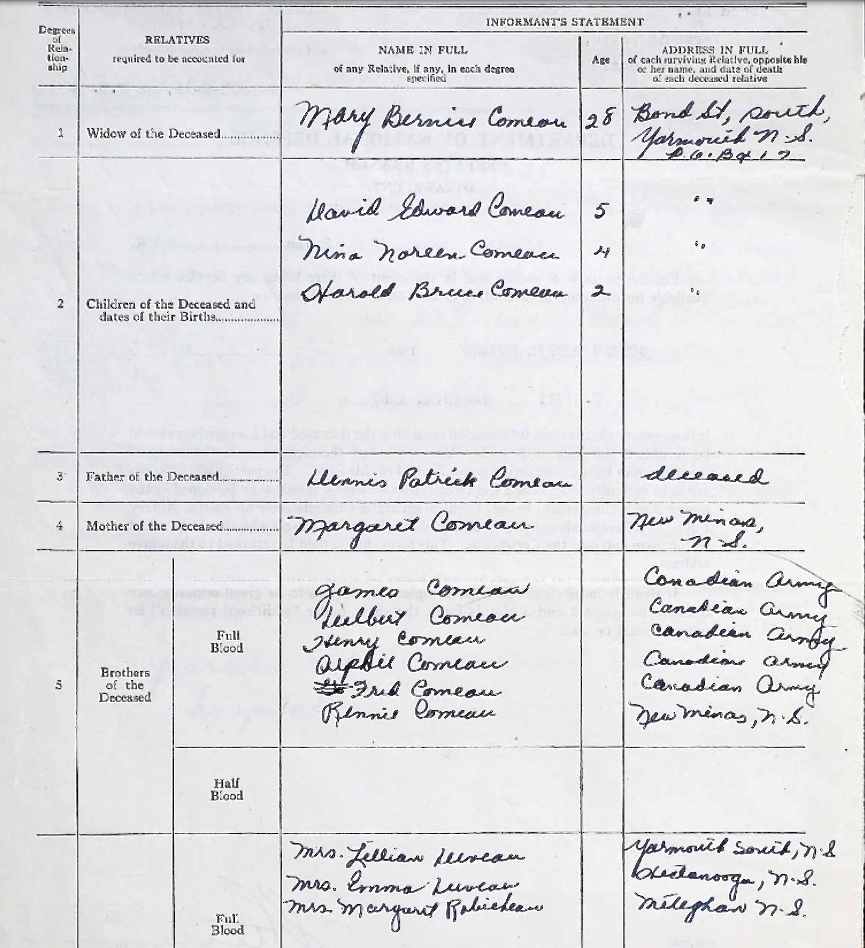 INFORMANT'S STATEMENT
Degrees of Rela- tion- ship
RELATIVES
required to be accounted for
NAME IN FULL
of any Relative, if any, in each degree
specified
Age
ADDRESS IN FULL
of each surviving Relative, opposite his
or her name, and date of death
of each deceased relative
1 Widow of the Deceased...... Mary Bernice Comeau 28 Bond St, South,
Yarmouth N.S.
P.O. Box 17
David Edward Comeau 5 " "
Nina Noreen Comeau 4 "
2 Children of the Deceased and Harold Bruce Comeau 2 "
dates of their Births..................
3 Father of the Deceased........ Dennis Patrick Comeau deceased
4 Mother of the Deceased....... Margaret Comeau New Minas,
N.S.
5 Brothers
of the
Deceased
Full
Blood
James Comeau Canadian Army
Comeau Canadian Army
Henry Comeau Canadian Army
Comeau Canadian Army
Fred Comeau Canadian Army
Rennie Comeau New Minas, N.S.
Half
Blood
Full
Blood
Mrs. Lillian Yarmouth South, N.S
Mrs. Emma N.S.
Mrs. Margaret Robicheau Meteghan N.S.